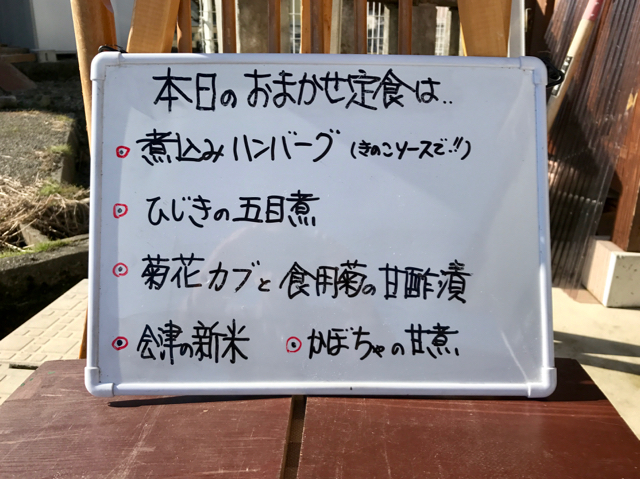 本日のおまかせ定食は..
煮込みハンバーグ (きのこソースで!!)
ひじきの五目煮
菊花カブと食用菊の甘酢漬
会津の新米 かぼちゃの甘煮